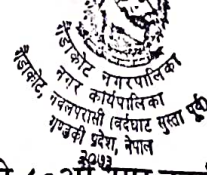 गैंडाकोट नगरपालिका
नगर कार्यपालिका
गैंडाकोट, नवलपरासी (बर्दघाट सुस्ता पूर्व)
गण्डकी प्रदेश, नेपाल
२०७३